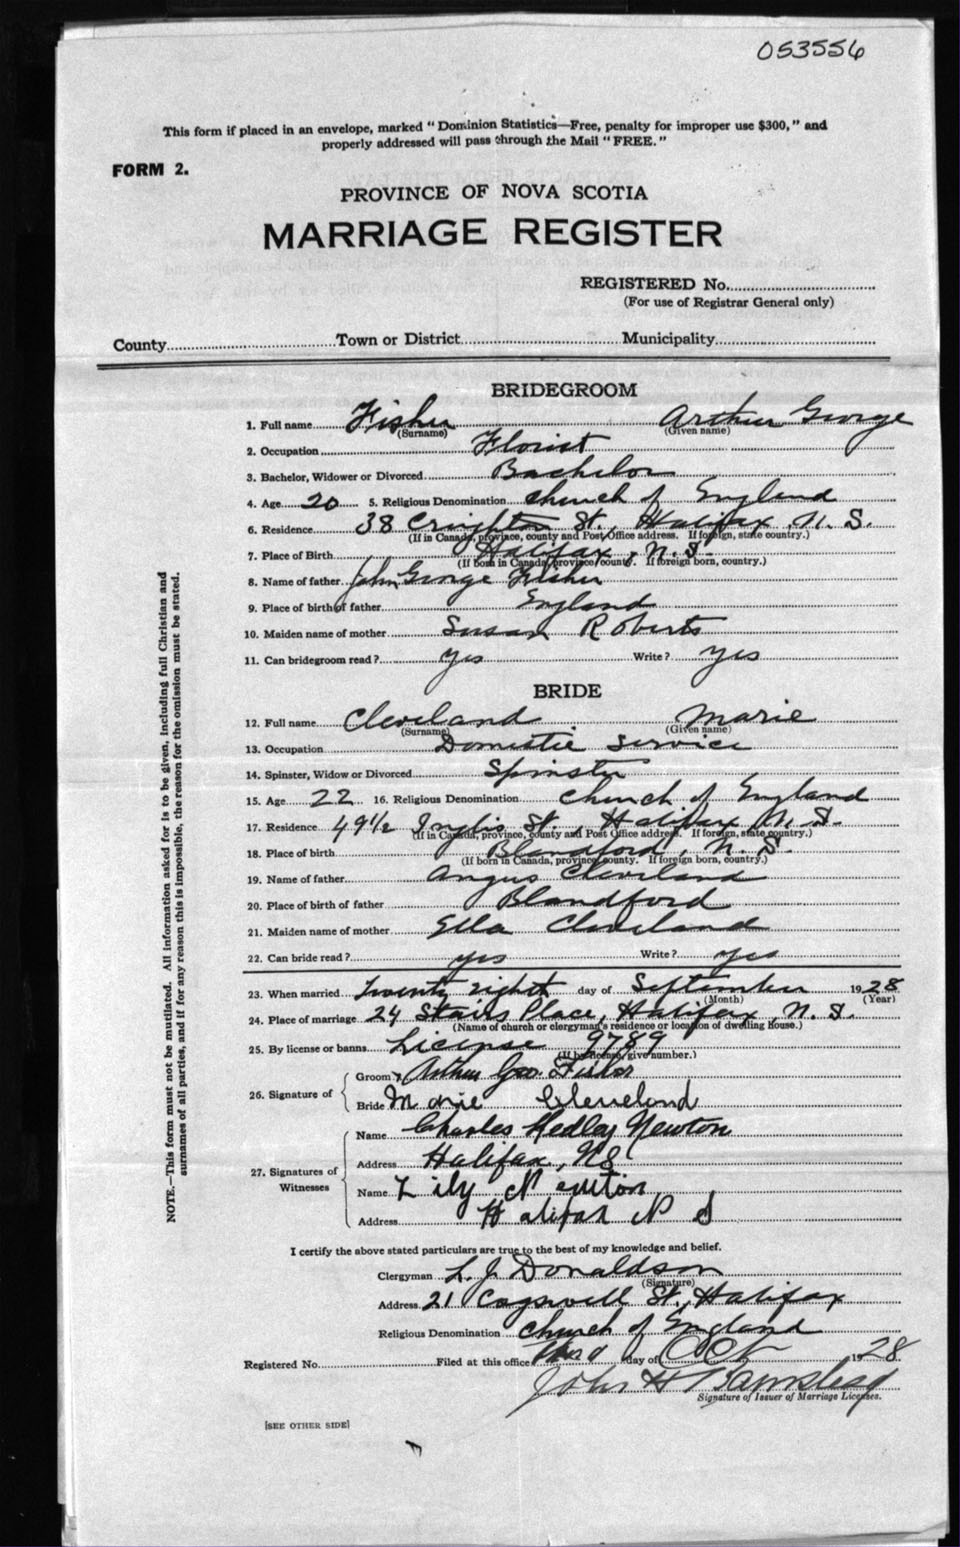 053556
This form if placed in an envelope, marked "Dominion Statistics—Free, penalty for improper use $300," and
properly addressed will pass through the Mail "FREE."
FORM 2.
PROVINCE OF NOVA SCOTIA
MARRIAGE REGISTER
REGISTERED No.
(For use of Registrar General only)
County Town or District Municipality
BRIDEGROOM
1. Full name Fisher Arthur George
(Surname) (Given name)
2. Occupation Florist
3. Bachelor, Widower or Divorced Bachelor
4. Age 20 5. Religious Denomination Church of England
6. Residence 38 Creighton St., Halifax, N. S.
(If in Canada, province, county and Post Office address. If foreign, state country.)
7. Place of Birth Halifax, N. S.
(If born in Canada, province, county. If foreign born, country.)
8. Name of father John George Fisher
9. Place of birth of father England
10. Maiden name of mother Susan Roberts
11. Can bridegroom read? yes Write? yes
BRIDE
12. Full name Cleveland Marie
(Surname) (Given name)
13. Occupation Domestic Service
14. Spinster, Widow or Divorced Spinster
15. Age 22 16. Religious Denomination Church of England
17. Residence 49 1/2 Inglis St., Halifax, N. S.
(If in Canada, province, county and Post Office address. If foreign, state country.)
18. Place of birth Blandford, N. S.
(If born in Canada, province, county. If foreign born, country.)
19. Name of father Angus Cleveland
20. Place of birth of father Blandford
21. Maiden name of mother Ella Cleveland
22. Can bride read? yes Write? yes
23. When married Twenty eighth day of September 1928
(Month) (Year)
24. Place of marriage 24 Stairs Place, Halifax, N. S.
(Name of church or clergyman's residence or location of dwelling house.)
25. By license or banns License 9789
(If by license, give number.)
26. Signature of
Groom Arthur Geo. Fisher
Bride Marie Cleveland
27. Signatures of Witnesses
Name Charles Hedley Newton
Address Halifax, NS
Name Lily Newton
Address Halifax N S
I certify the above stated particulars are true to the best of my knowledge and belief.
Clergyman L. J. Donaldson
(Signature)
Address 21 Cogswell St., Halifax
Religious Denomination Church of England
Registered No. Filed at this office Third day of Oct 1928
John H Barnstead
Signature of Issuer of Marriage Licenses.
[SEE OTHER SIDE]
NOTE.—This form must not be mutilated. All information asked for is to be given, including full Christian and
surnames of all parties, and if for any reason this is impossible, the reason for the omission must be stated.